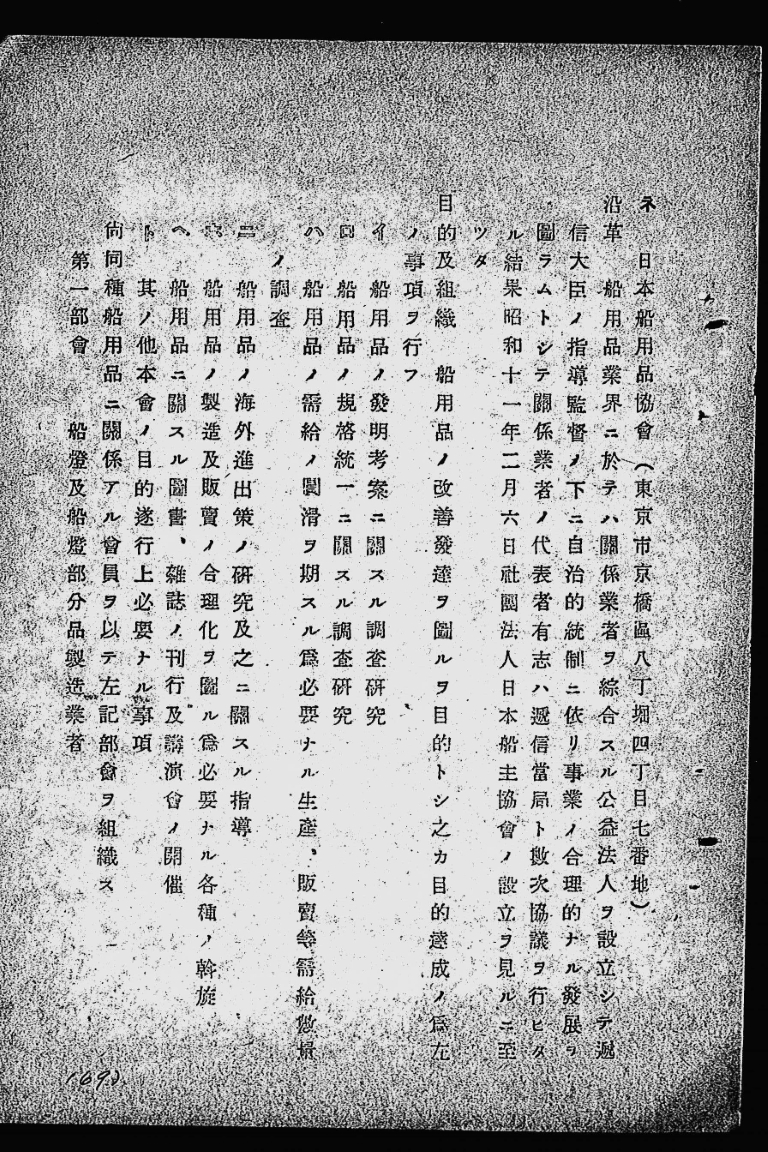 ネ　日本船用品協會（東京市京橋區八丁堀四丁目七番地）
沿革　船用品業界ニ於テハ關係業者ヲ綜合スル公益法人ヲ設立シテ遞
信大臣ノ指導監督ノ下ニ自治的統制ニ依リ事業ノ合理的ナル發展ヲ
圖ラムトシテ關係業者ノ代表者有志ハ遞信當局ト數次協議ヲ行ヒタ
ル結果昭和十一年二月六日社團法人日本船主協會ノ設立ヲ見ルニ至
ツタ
目的及組織　船用品ノ改善發達ヲ圖ルヲ目的トシ之カ目的達成ノ爲左
ノ事項ヲ行フ
イ　船用品ノ發明考案ニ關スル調査研究
ロ　船用品ノ規格統一ニ關スル調査研究
ハ　船用品ノ需給ノ圓滑ヲ期スル爲必要ナル生產、販賣等需給數量
ノ調査
ニ　船用品ノ海外進出策ノ研究及之ニ關スル指導
ホ　船用品ノ製造及販賣ノ合理化ヲ圖ル爲必要ナル各種ノ斡旋
ヘ　船用品ニ關スル圖書、雜誌ノ刊行及講演會ノ開催
ト　其ノ他本會ノ目的遂行上必要ナル事項
尙同種船用品ニ關係アル會員ヲ以テ左記部會ヲ組織ス
第一部會　船燈及船燈部分品製造業者